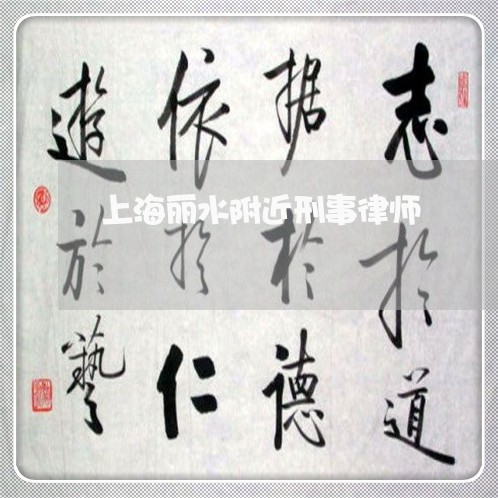 志於道
据於德
依於仁
遊於藝
上海丽水附近刑事律师